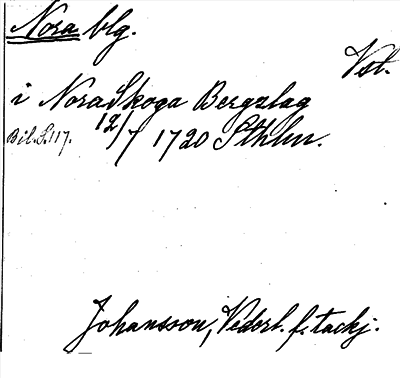 Nora blg.
Vst.
i Nora Skoga Bergslag
Bil. S. 117. 12/7 1720 Sthlm.
Johansson, Vederl. f. tackj.